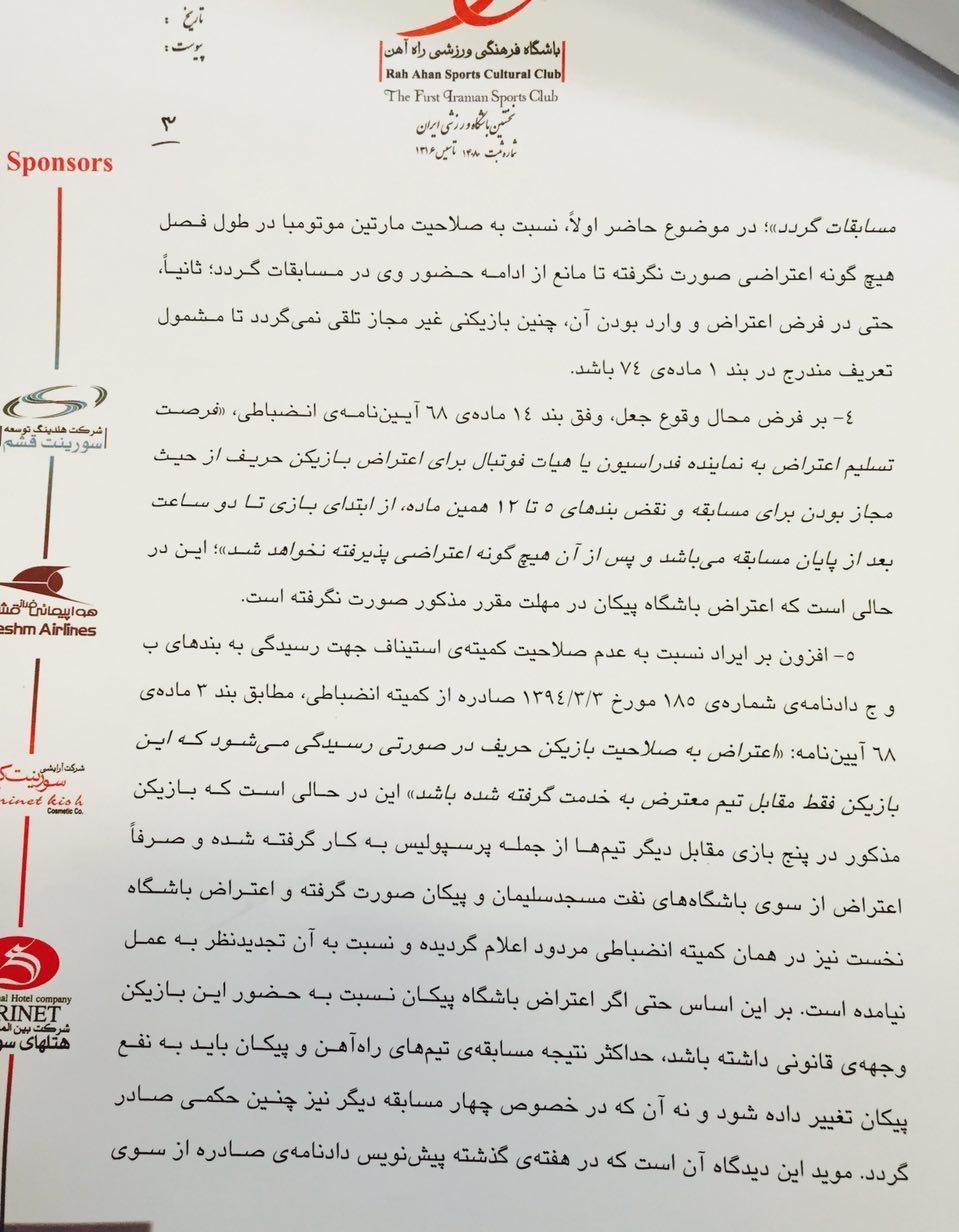 تاریخ :
پیوست :
باشگاه فرهنگی ورزشی راه آهن
Rah Ahan Sports Cultural Club
The First Iranian Sports Club
نخستین باشگاه ورزشی ایران
شماره ثبت ۱۴۰۸۰ تاسیس ۱۳۱۶
۳
Sponsors
مسابقات گردد»؛ در موضوع حاضر اولاً، نسبت به صلاحیت مارتین موتومبا در طول فصل
هیچ گونه اعتراضی صورت نگرفته تا مانع از ادامه حضور وی در مسابقات گردد؛ ثانیاً،
حتی در فرض اعتراض و وارد بودن آن، چنین بازیکنی غیر مجاز تلقی نمی‌گردد تا مشمول
تعریف مندرج در بند ۱ ماده‌ی ۷٤ باشد.
٤- بر فرض محال وقوع جعل، وفق بند ۱٤ ماده‌ی ٦۸ آیین‌نامه‌ی انضباطی، «فرصت
تسلیم اعتراض به نماینده فدراسیون یا هیات فوتبال برای اعتراض بازیکن حریف از حیث
مجاز بودن برای مسابقه و نقض بندهای ٥ تا ۱۲ همین ماده، از ابتدای بازی تا دو ساعت
بعد از پایان مسابقه می‌باشد و پس از آن هیچ گونه اعتراضی پذیرفته نخواهد شد»؛ این در
حالی است که اعتراض باشگاه پیکان در مهلت مقرر مذکور صورت نگرفته است.
٥- افزون بر ایراد نسبت به عدم صلاحیت کمیته‌ی استیناف جهت رسیدگی به بندهای ب
و ج دادنامه‌ی شماره‌ی ۱۸٥ مورخ ۱۳۹٤/۳/۳ صادره از کمیته انضباطی، مطابق بند ۳ ماده‌ی
٦۸ آیین‌نامه: «اعتراض به صلاحیت بازیکن حریف در صورتی رسیدگی می‌شود که این
بازیکن فقط مقابل تیم معترض به خدمت گرفته شده باشد» این در حالی است که بازیکن
مذکور در پنج بازی مقابل دیگر تیم‌ها از جمله پرسپولیس به کار گرفته شده و صرفاً
اعتراض از سوی باشگاه‌های نفت مسجدسلیمان و پیکان صورت گرفته و اعتراض باشگاه
نخست نیز در همان کمیته انضباطی مردود اعلام گردیده و نسبت به آن تجدیدنظر به عمل
نیامده است. بر این اساس حتی اگر اعتراض باشگاه پیکان نسبت به حضور این بازیکن
وجهه‌ی قانونی داشته باشد، حداکثر نتیجه مسابقه‌ی تیم‌های راه‌آهن و پیکان باید به نفع
پیکان تغییر داده شود و نه آن که در خصوص چهار مسابقه دیگر نیز چنین حکمی صادر
گردد. موید این دیدگاه آن است که در هفته‌ی گذشته پیش‌نویس دادنامه‌ی صادره از سوی
شرکت هلدینگ توسعه
سورینت قشم
هواپیمائی
eshm Airlines
شرکت آرایشی
rinet kish
Cosmetic Co.
al Hotel company
RINET
شرکت بین
هتلهای